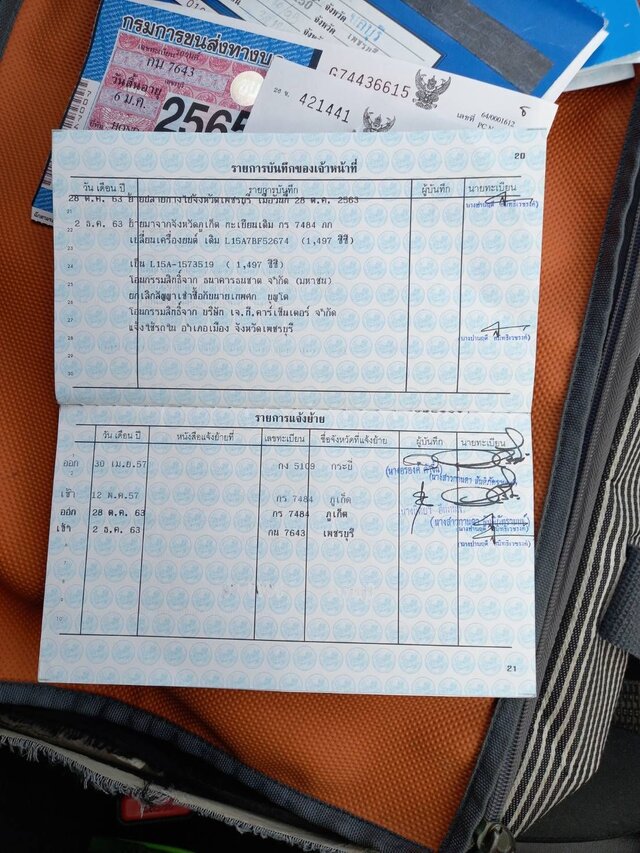 กรมการขนส่งทางบก
เลขทะเบียนรถยนต์
กน 7643
เพชรบุรี
วันสิ้นอายุ
6 ม.ค. 2565
จังหวัด ชลบุรี
จังหวัด เพชรบุรี
G74436615
421441
เลขที่ 64/0001612
20
รายการบันทึกของเจ้าหน้าที่
วัน เดือน ปี รายการบันทึก ผู้บันทึก นายทะเบียน
28 ต.ค. 63 ย้ายปลายทางไปจังหวัดเพชรบุรี เมื่อวันที่ 28 ต.ค. 2563
2 ธ.ค. 63 ย้ายมาจากจังหวัดภูเก็ต ทะเบียนเดิม กร 7484 ภก
เปลี่ยนเครื่องยนต์ เดิม L15A7BF52674 (1,497 ซีซี)
เป็น L15A-1573519 (1,497 ซีซี)
โอนกรรมสิทธิ์จาก ธนาคารธนชาต จำกัด (มหาชน)
ยกเลิกสัญญาเช่าซื้อกับนายเกผศก
โอนกรรมสิทธิ์จาก บริษัท เจ.ที.คาร์เซ็นเตอร์ จำกัด
แจ้งใช้รถใน อำเภอเมือง จังหวัดเพชรบุรี
รายการแจ้งย้าย
วัน เดือน ปี หนังสือแจ้งย้ายที่ เลขทะเบียน ชื่อจังหวัดที่แจ้งย้าย ผู้บันทึก นายทะเบียน
ออก 30 เม.ย.57 กง 5109 กระบี่
เข้า 12 พ.ค.57 กร 7484 ภูเก็ต
ออก 28 ต.ค. 63 กร 7484 ภูเก็ต
เข้า 2 ธ.ค. 63 กน 7643 เพชรบุรี
21